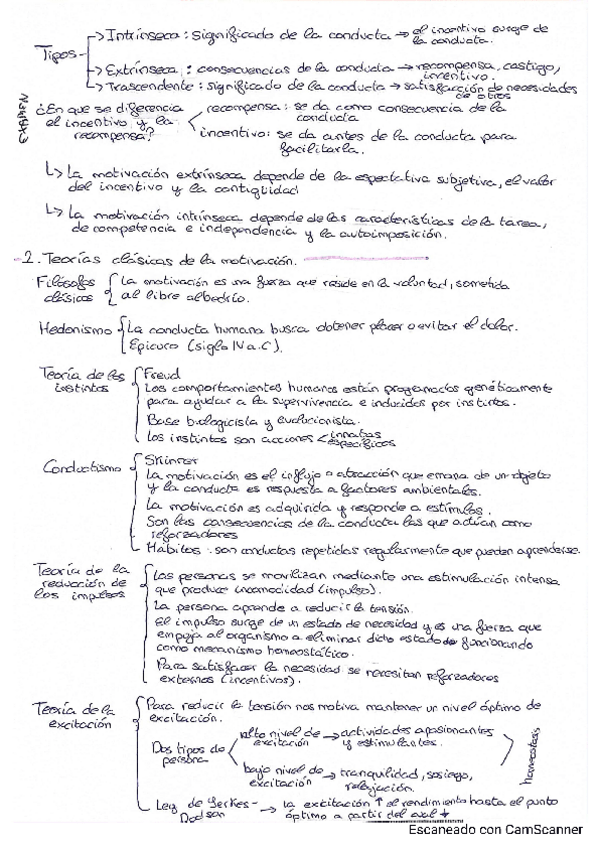 Tipos
→ Intrínseca: significado de la conducta → el incentivo surge de
la conducta.
→ Extrínseca: consecuencias de la conducta → recompensa, castigo,
incentivo.
→ Trascendente: significado de la conducta → satisfacción de necesidades
de otros
¿En que se diferencia
el incentivo y la
recompensa?
recompensa: se da como consecuencia de la
conducta
incentivo: se da antes de la conducta para
facilitarla.
↳ La motivación extrínseca depende de la espectativa subjetiva, el valor
del incentivo y la contigüidad
↳ La motivación intrínseca depende de las características de la tarea,
de competencia e independencia y la autoimposición.
2. Teorías clásicas de la motivación.
Filósofos
clásicos
La motivación es una fuerza que reside en la voluntad, sometida
al libre albedrío.
Hedonismo
La conducta humana busca obtener placer o evitar el dolor.
Epicuro (siglo IV a.C).
Teoría de los
instintos
Freud
Los comportamientos humanos están programados genéticamente
para ayudar a la supervivencia e inducidos por instintos.
Base biologicista y evolucionista.
Los instintos son acciones < innatas
específicas
Conductismo
Skinner
La motivación es el influjo o atracción que emana de un objeto
y la conducta es respuesta a factores ambientales.
La motivación es adquirida y responde a estímulos.
Son las consecuencias de la conducta las que actúan como
reforzadores
Hábitos: son conductas repetidas regularmente que pueden aprenderse.
Teoría de la
reducción de
los impulsos
Las personas se movilizan mediante una estimulación intensa
que produce incomodidad (impulso).
La persona aprende a reducir la tensión.
El impulso surge de un estado de necesidad y es una fuerza que
empuja al organismo a eliminar dicho estado funcionando
como mecanismo homeostático.
Para satisfacer la necesidad se necesitan reforzadores
externos (incentivos).
Teoría de la
excitación
Para reducir la tensión nos motiva mantener un nivel óptimo de
excitación.
Dos tipos de
persona
alto nivel de
excitación → actividades apasionantes
y estimulantes.
bajo nivel de
excitación → tranquilidad, sosiego,
relajación.
homeostasis
Ley de Yerkes-
Dodson → la excitación ↑ el rendimiento hasta el punto
óptimo a partir del cual ↓
Escaneado con CamScanner